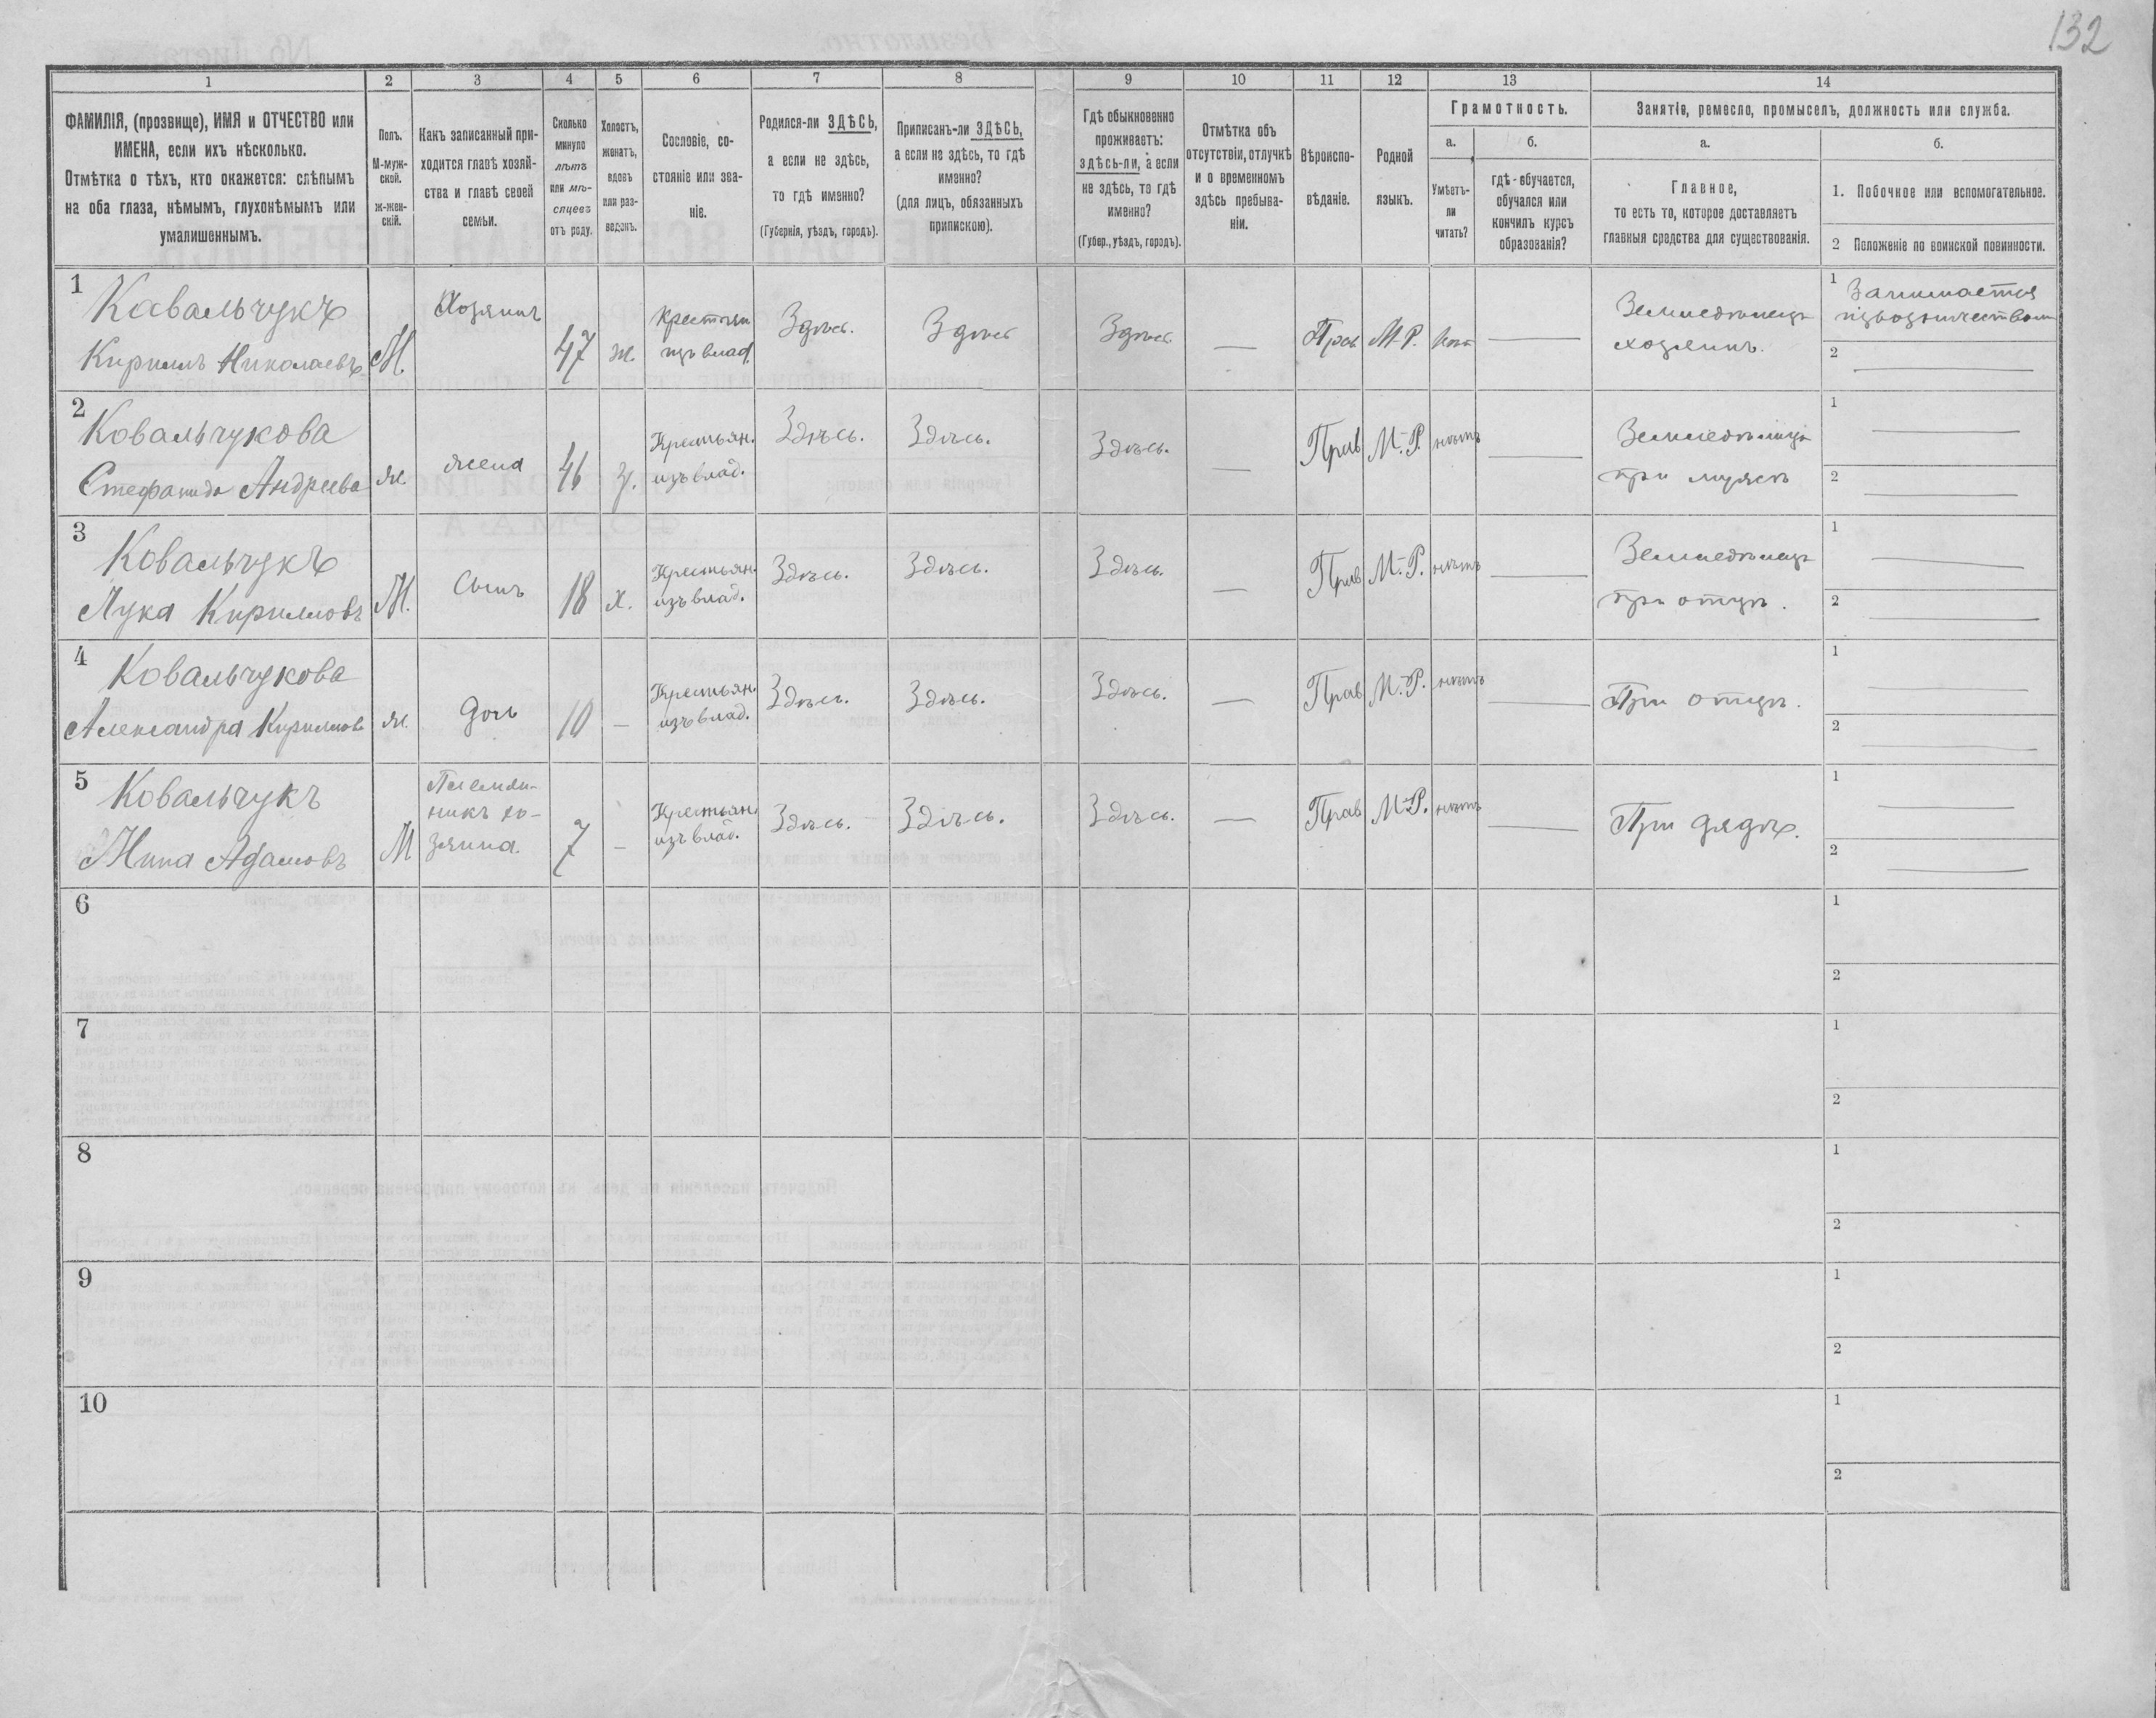 132
1 2 3 4 5 6 7 8 9 10 11 12 13 14
ФАМИЛІЯ, (прозвище), ИМЯ и ОТЧЕСТВО или
ИМЕНА, если ихъ нѣсколько.
Отмѣтка о тѣхъ, кто окажется: слѣпымъ
на оба глаза, нѣмымъ, глухонѣмымъ или
умалишеннымъ.
Полъ.
М-муж-
ской.
ж-жен-
скій.
Какъ записанный при-
ходится главѣ хозяй-
ства и главѣ своей
семьи.
Сколько
минуло
лѣтъ
или мѣ-
сяцевъ
отъ роду.
Холостъ,
женатъ,
вдовъ
или раз-
веденъ.
Сословіе, со-
стояніе или зва-
ніе.
Родился-ли ЗДѢСЬ,
а если не здѣсь,
то гдѣ именно?
(Губернія, уѣздъ, городъ).
Приписанъ-ли ЗДѢСЬ,
а если не здѣсь, то гдѣ
именно?
(для лицъ, обязанныхъ
припискою).
Гдѣ обыкновенно
проживаетъ:
здѣсь-ли, а если
не здѣсь, то гдѣ
именно?
(Губер., уѣздъ, городъ).
Отмѣтка объ
отсутствіи, отлучкѣ
и о временномъ
здѣсь пребыва-
ніи.
Вѣроиспо-
вѣданіе.
Родной
языкъ.
Грамотность.
а.
Умѣетъ-
ли
читать?
б.
гдѣ-обучается,
обучался или
кончилъ курсъ
образованія?
Занятіе, ремесло, промыселъ, должность или служба.
а.
Главное,
то есть то, которое доставляетъ
главныя средства для существованія.
б.
1. Побочное или вспомогательное.
2 Положеніе по воинской повинности.
1
Ковальчукъ
Кириллъ Николаевъ
М.
Хозяинъ
47
ж.
Крестьян
изъ влад.
Здѣсь.
Здѣсь
Здѣсь
—
Прав
М.Р.
—
Земледѣлецъ
хозяинъ.
1 Занимается
извозничествомъ
2 —
2
Ковальчукова
Стефанида Андреева
ж.
жена
46
з.
Крестьян.
изъ влад.
Здѣсь.
Здѣсь.
Здѣсь.
—
Прав
М.-Р.
нѣтъ
—
Земледѣлица
при мужѣ
1 —
2 —
3
Ковальчукъ
Лука Кирилловъ
М.
Сынъ
18
х.
Крестьян.
изъ влад.
Здѣсь.
Здѣсь.
Здѣсь.
—
Прав
М.-Р.
нѣтъ
—
Земледѣлецъ
при отцѣ.
1 —
2 —
4
Ковальчукова
Александра Кириллов
ж.
Дочь
10
—
Крестьян.
изъ влад.
Здѣсь.
Здѣсь.
Здѣсь.
—
Прав
М.-Р.
нѣтъ
—
При отцѣ.
1 —
2 —
5
Ковальчукъ
Мина Адамовъ
М
Племян-
никъ хо-
зяина.
7
—
Крестьян.
изъ влад.
Здѣсь.
Здѣсь.
Здѣсь.
—
Прав
М-Р.
нѣтъ
—
При дядѣ.
1 —
2 —
6
1
2
7
1
2
8
1
2
9
1
2
10
1
2